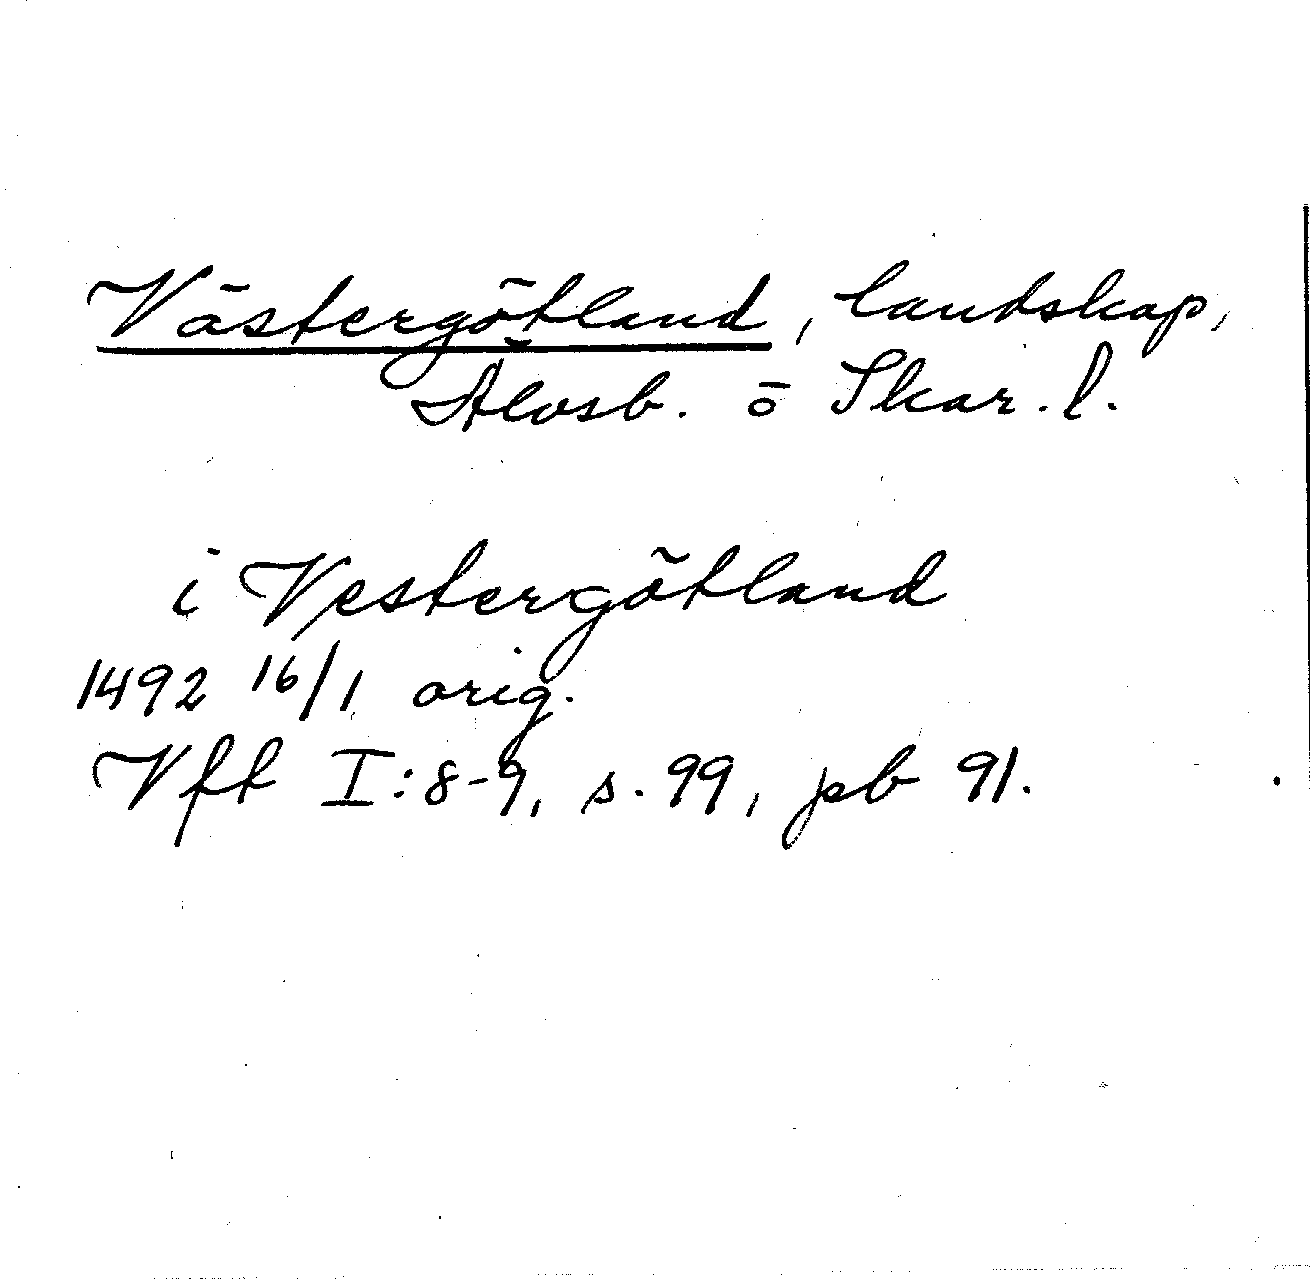 Västergötland, landskap,
Älvsb. o Skar. l.
i Vestergötland
1492 16/1 orig.
Vft I:8-9, s. 99, pb 91.